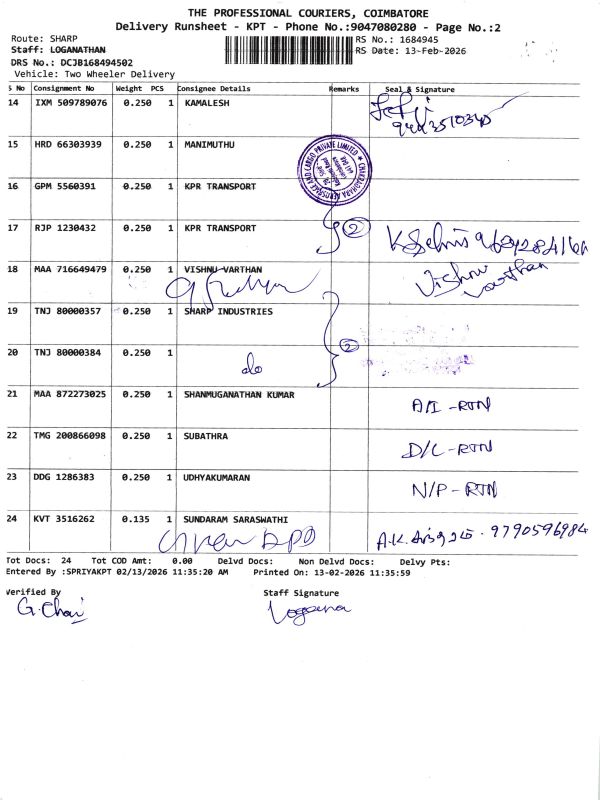 THE PROFESSIONAL COURIERS, COIMBATORE
Delivery Runsheet - KPT - Phone No.:9047080280 - Page No.:2
Route: SHARP RS No.: 1684945
Staff: LOGANATHAN RS Date: 13-Feb-2026
DRS No.: DCJB168494502
Vehicle: Two Wheeler Delivery
S No Consignment No Weight PCS Consignee Details Remarks Seal & Signature
14 IXM 509789076 0.250 1 KAMALESH
15 HRD 66303939 0.250 1 MANIMUTHU
16 GPM 5560391 0.250 1 KPR TRANSPORT
17 RJP 1230432 0.250 1 KPR TRANSPORT 2
18 MAA 716649479 0.250 1 VISHNU VARTHAN Vishnu
varthan
19 TNJ 80000357 0.250 1 SHARP INDUSTRIES
20 TNJ 80000384 0.250 1 do 2
21 MAA 872273025 0.250 1 SHANMUGANATHAN KUMAR A/I -RTN
22 TMG 200866098 0.250 1 SUBATHRA D/C -RTN
23 DDG 1286383 0.250 1 UDHYAKUMARAN N/P - RTN
24 KVT 3516262 0.135 1 SUNDARAM SARASWATHI A.K. 9790596984
Tot Docs: 24 Tot COD Amt: 0.00 Delvd Docs: Non Delvd Docs: Delvy Pts:
Entered By :SPRIYAKPT 02/13/2026 11:35:20 AM Printed On: 13-02-2026 11:35:59
Verified By Staff Signature